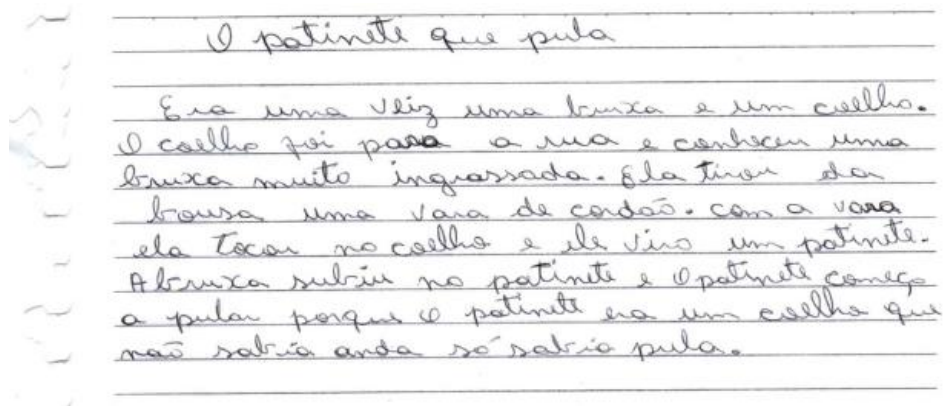 O patinete que pula
Era uma veiz uma bruxa e um coelho.
O coelho foi para a rua e conheceu uma
bruxa muito ingrassada. Ela tirou da
bousa uma vara de cordão. com a vara
ela tocou no coelho e ele viro um patinete.
A bruxa subiu no patinete e o patinete começo
a pular porque o patinete era um coelho que
não sabia anda só sabia pula.